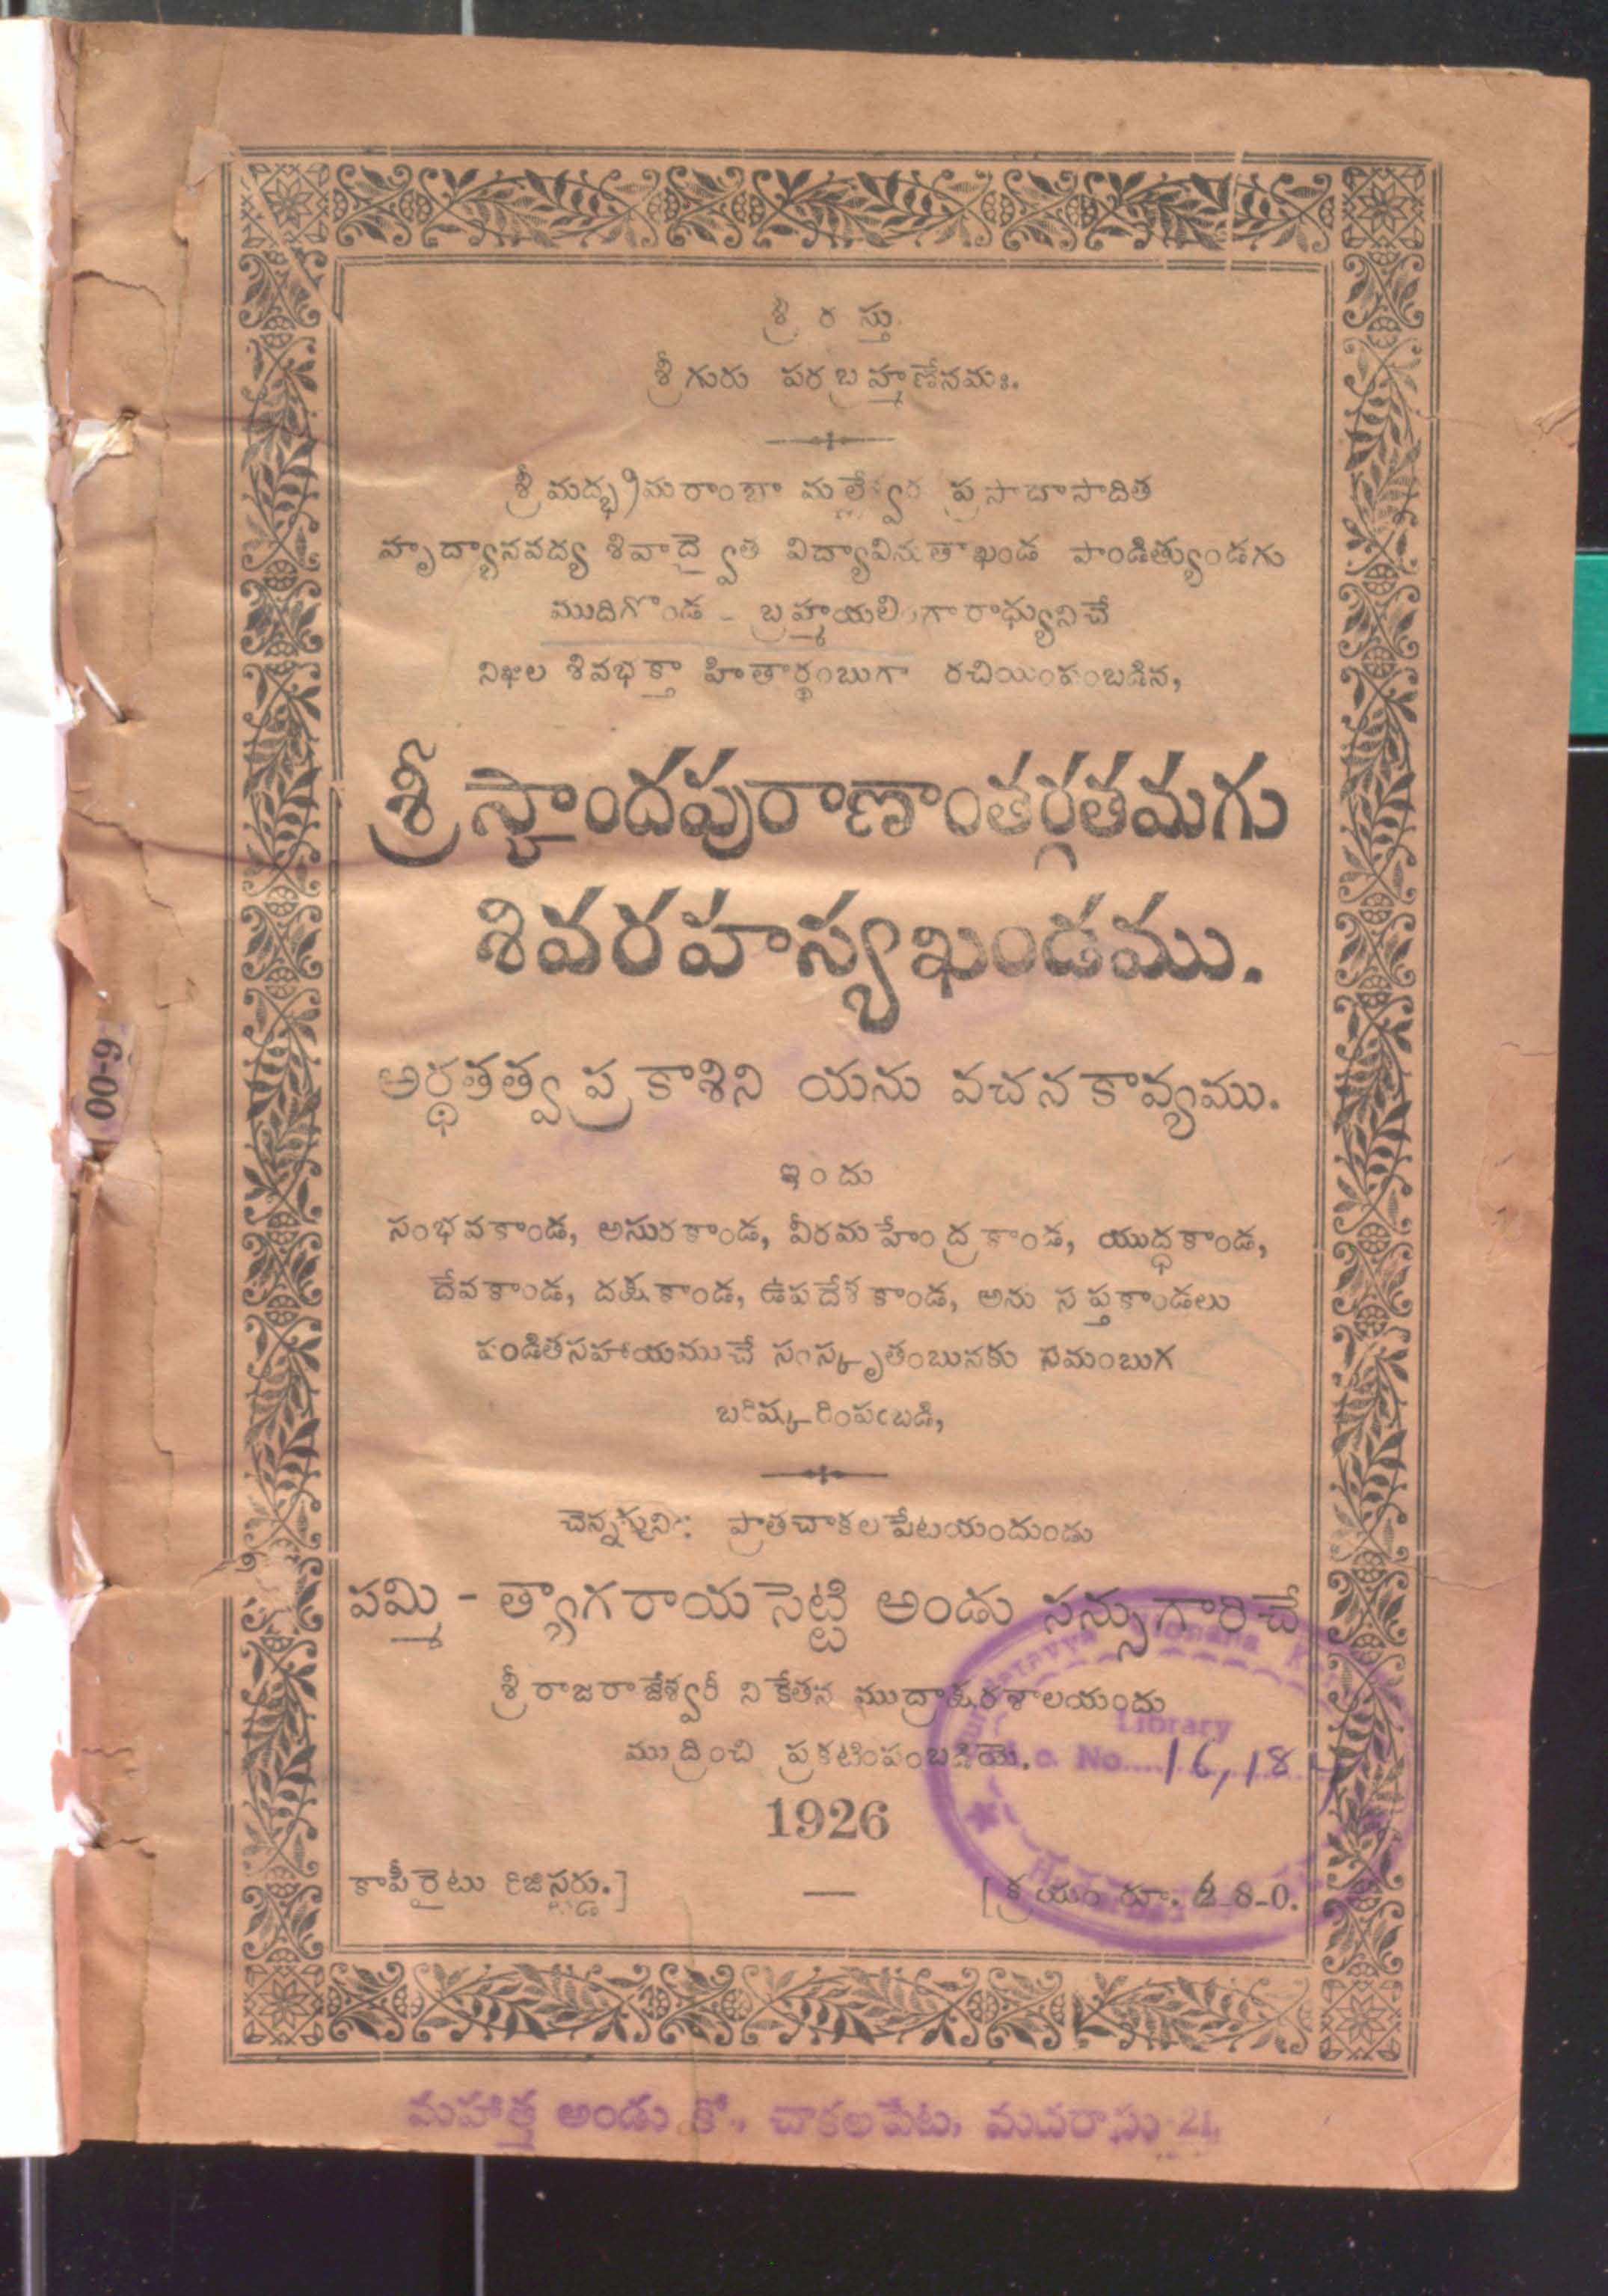 శ్రీ ర స్తు.
శ్రీగురు పరబ్రహ్మణేనమః.
శ్రీమద్భ్రమరాంబా మల్లేశ్వర ప్రసాదాసాదిత
హృద్యానవద్య శివాద్వైత విద్యావినుతాఖండ పాండిత్యుండగు
ముదిగొండ - బ్రహ్మయలింగారాధ్యునిచే
నిఖిల శివభక్తా హితార్థంబుగా రచియింపంబడిన,
శ్రీస్కాందపురాణాంతర్గతమగు
శివరహస్యఖండము.
అర్థతత్వప్రకాశిని యను వచనకావ్యము.
ఇందు
సంభవకాండ, అసురకాండ, వీరమహేంద్రకాండ, యుద్ధకాండ,
దేవకాండ, దక్షకాండ, ఉపదేశకాండ, అను సప్తకాండలు
పండితసహాయముచే సంస్కృతంబునకు సమంబుగ
బరిష్కరింపఁబడి,
చెన్నపురి: ప్రాతచాకలపేటయందుండు
పమ్మి - త్యాగరాయసెట్టి అండు సన్సుగారిచే
శ్రీరాజరాజేశ్వరీ నికేతన ముద్రాక్షరశాలయందు
ముద్రించి ప్రకటింపంబడియె.
1926
కాపీరైటు రిజిస్టర్డు.] [క్రయం రూ. 2-8-0.
Library
No. 16,184
మహాత్మ అండు కో., చాకలపేట, మదరాసు 21.
00-9